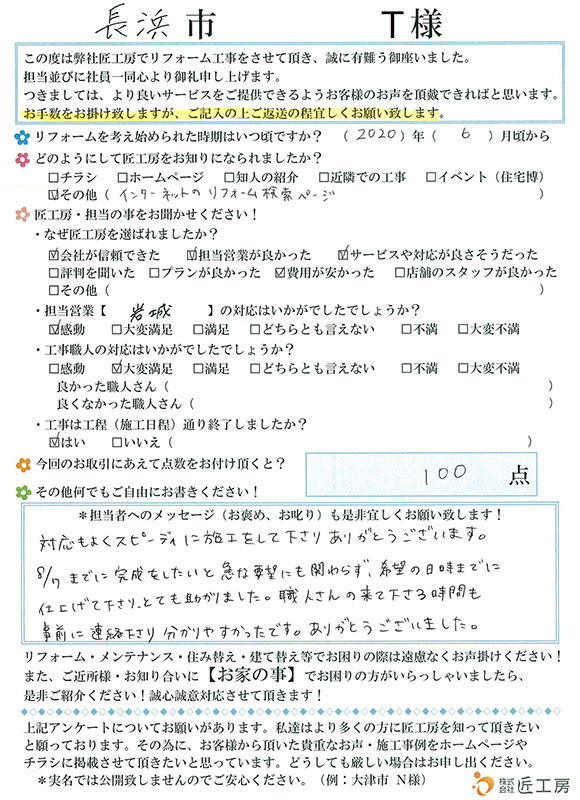 長浜市 T様
この度は弊社匠工房でリフォーム工事をさせて頂き、誠に有難う御座いました。
担当並びに社員一同心より御礼申し上げます。
つきましては、より良いサービスをご提供できるようお客様のお声を頂戴できればと思います。
お手数をお掛け致しますが、ご記入の上ご返送の程宜しくお願い致します。
リフォームを考え始められた時期はいつ頃ですか？ （2020）年（6）月頃から
どのようにして匠工房をお知りになられましたか？
□チラシ □ホームページ □知人の紹介 □近隣での工事 □イベント（住宅博）
☑その他（インターネットのリフォーム検索ページ）
匠工房・担当の事をお聞かせください！
・なぜ匠工房を選ばれましたか？
☑会社が信頼できた ☑担当営業が良かった ☑サービスや対応が良さそうだった
□評判を聞いた □プランが良かった ☑費用が安かった □店舗のスタッフが良かった
□その他（ ）
・担当営業【 岩城 】の対応はいかがでしたでしょうか？
☑感動 □大変満足 □満足 □どちらとも言えない □不満 □大変不満
・工事職人の対応はいかがでしたでしょうか？
□感動 ☑大変満足 □満足 □どちらとも言えない □不満 □大変不満
良かった職人さん（ ）
良くなかった職人さん（ ）
・工事は工程（施工日程）通り終了しましたか？
☑はい □いいえ（ ）
今回のお取引にあえて点数をお付け頂くと？ 100 点
その他何でもご自由にお書きください！
＊担当者へのメッセージ（お褒め、お叱り）も是非宜しくお願い致します！
対応もよくスピーディに施工をして下さりありがとうございます。
8/7までに完成をしたいと急な要望にも関わらず、希望の日時までに
仕上げて下さり、とても助かりました。職人さんの来て下さる時間も
事前に連絡下さり分かりやすかったです。ありがとうございました。
リフォーム・メンテナンス・住み替え・建て替え等でお困りの際は遠慮なくお声掛けください！
また、ご近所様・お知り合いに【お家の事】でお困りの方がいらっしゃいましたら、
是非ご紹介ください！誠心誠意対応させて頂きます！
上記アンケートについてお願いがあります。私達はより多くの方に匠工房を知って頂きたい
と願っております。その為に、お客様から頂いた貴重なお声・施工事例をホームページや
チラシに掲載させて頂きたいと思っています。どうしても厳しい場合はお申し出ください。
＊実名では公開致しませんのでご安心ください。（例：大津市 N様）
株式会社匠工房